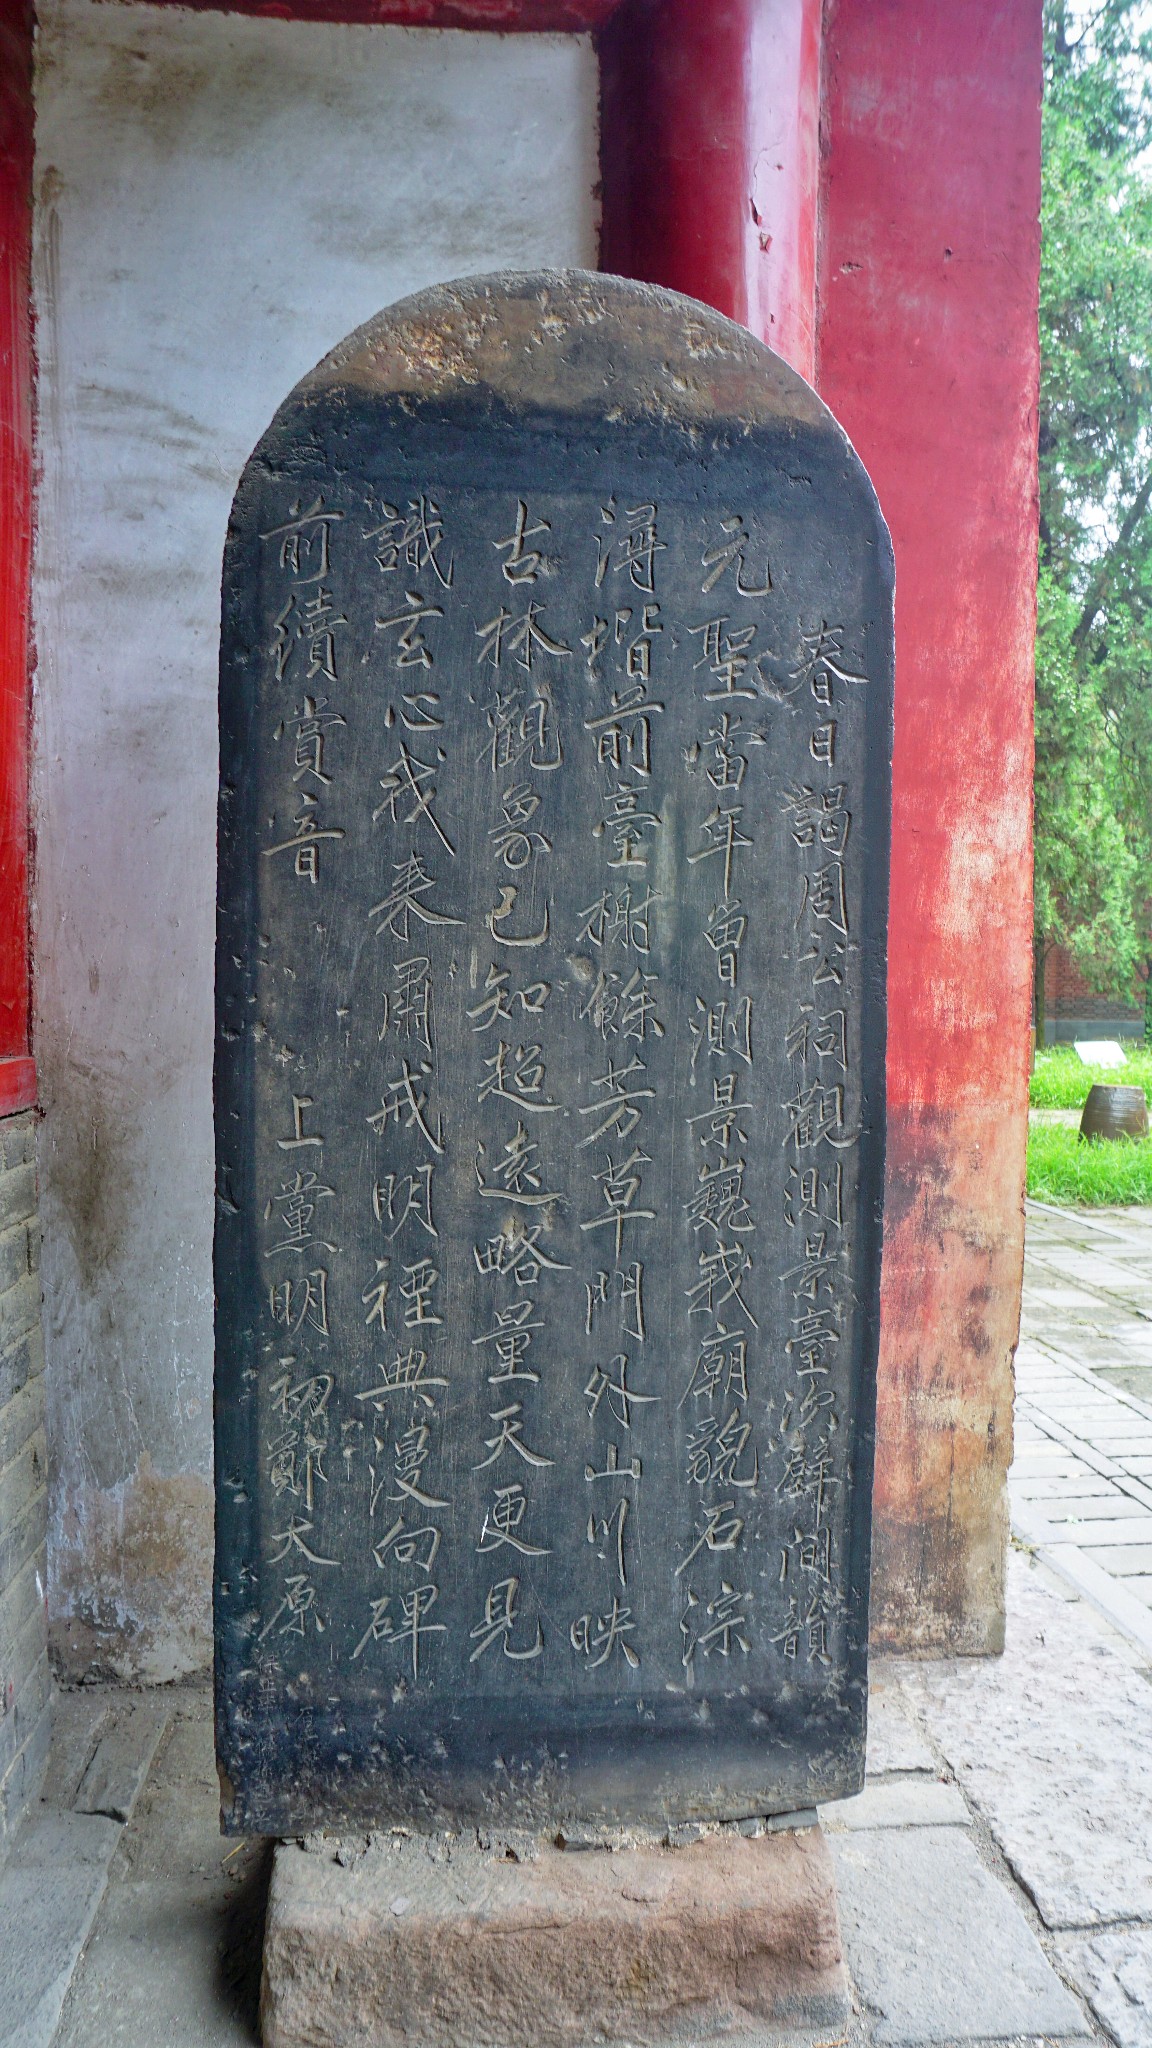 春日謁周公祠觀測景臺次壁間韻
元聖當年曾測景巍峩廟貌石淙
潯堦前臺榭餘芳草門外山川映
古林觀象已知超遠略量天更見
識玄心我来肅戒明禋典漫向碑
前續賞音
上黨明初鄭大原